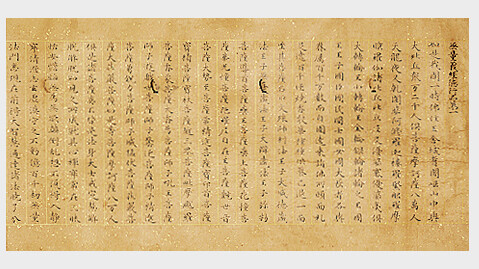 無量義經德行品第一
如是我聞一時佛住王舍城耆闍崛山中與
大比丘眾萬二千人俱菩薩摩訶薩八萬人
天龍夜叉乾闥婆阿修羅迦樓羅緊那羅摩
睺羅伽諸比丘比丘尼及優婆塞優婆夷俱
大轉輪王小轉輪王金輪銀輪諸輪之王國
王王子國臣國民國士國女國大長者各與
眷屬百千萬數而自圍遶來詣佛所頭面禮
足遶百千匝燒香散華種種供養已退一面
坐其菩薩名曰文殊師利法王子大威德藏
法王子無憂藏法王子大辯藏法王子彌勒
菩薩導首菩薩藥王菩薩藥上菩薩花幢菩
薩花光幢菩薩陀羅尼自在王菩薩觀世音
菩薩大勢至菩薩常精進菩薩寶印首菩薩
寶積菩薩寶杖菩薩越三界菩薩毘摩颰羅
菩薩香象菩薩大香象菩薩師子吼王菩薩
師子遊戲世菩薩師子奮迅菩薩師子精進
菩薩勇銳力菩薩師子威猛伏菩薩莊嚴菩
薩大莊嚴菩薩如是等菩薩摩訶薩八萬人
俱是諸菩薩莫不皆是法身大士戒定慧解
脫解脫知見之所成就其心禪寂常在三昧
恬安惔怕無為無欲顛倒亂想不復得入靜
寂清澄志玄虛漠守之不動億百千劫無量
法門悉現在前得大智慧通達諸法曉了分